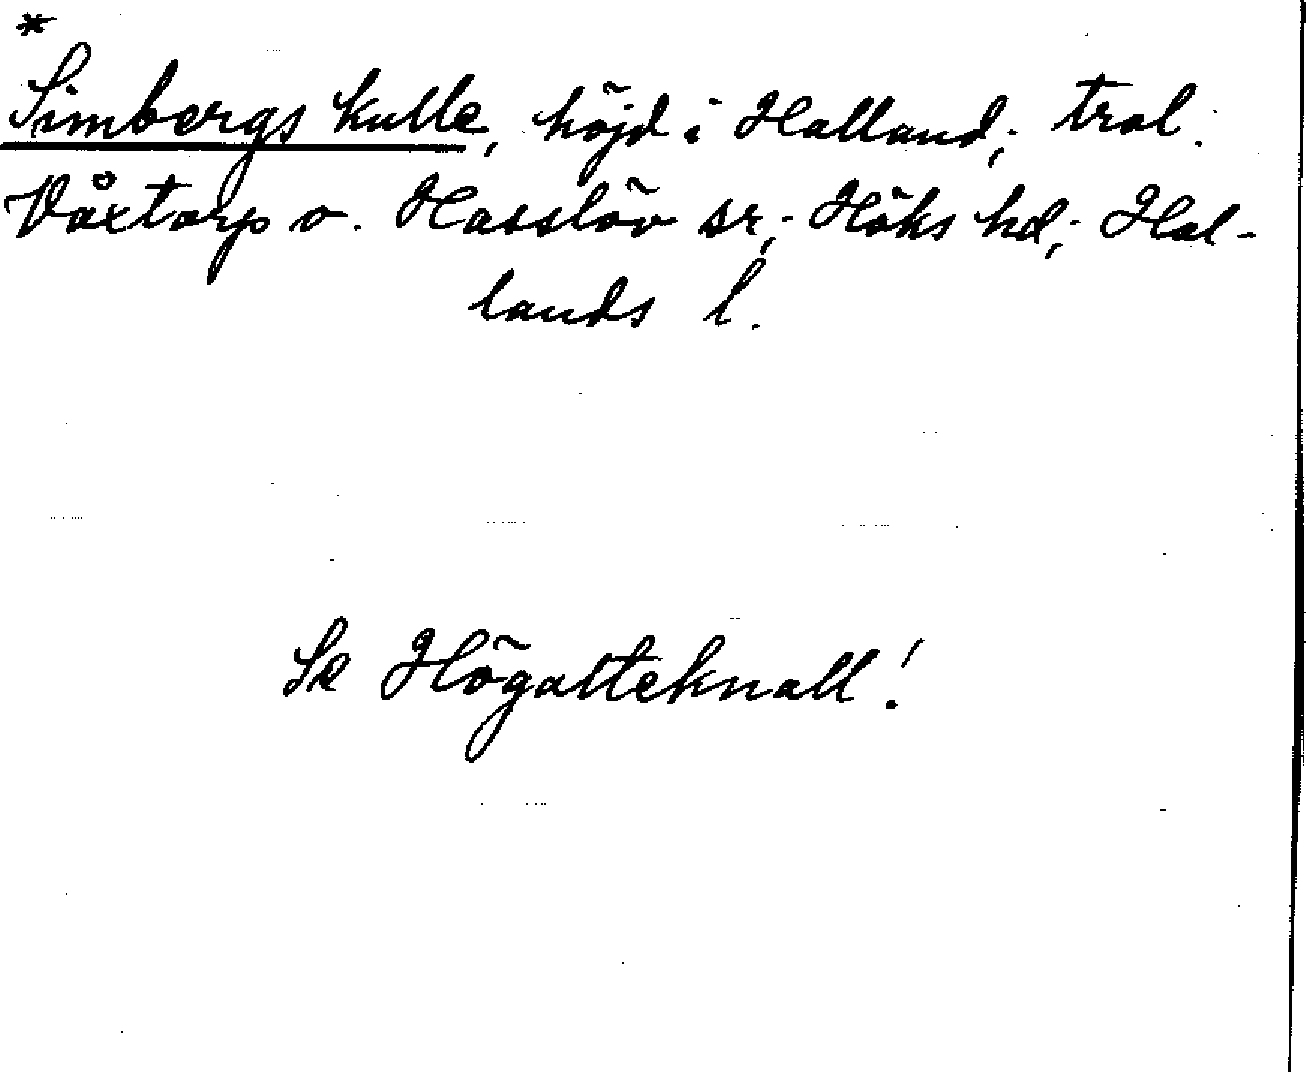 *
Simbergs kulle, höjd i Halland; trol.
Våxtorp o. Hasslöv sr; Höks hd; Hal-
lands l.
Se Högalteknall!